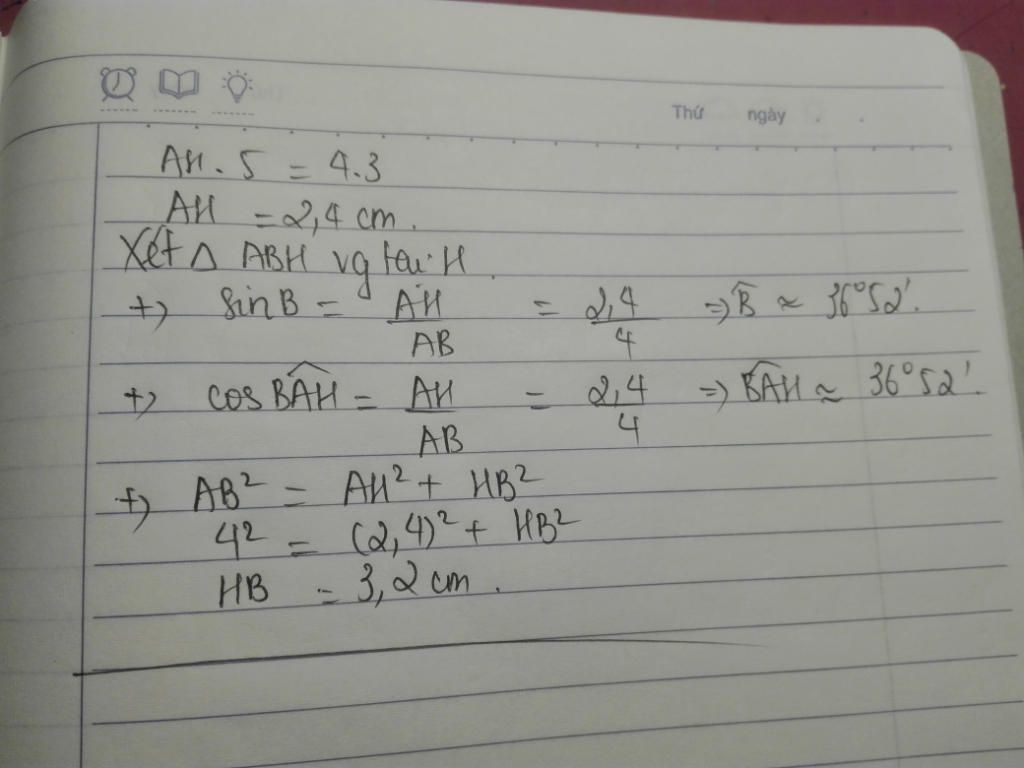 Thứ ngày . .
AH . 5 = 4.3
AH = 2,4 cm.
Xét △ ABH vg tại H.
+) sin B = AH/AB = 2,4/4 => B̂ ≈ 36°52'.
+) cos \widehat{BAH} = AH/AB = 2,4/4 => \widehat{BAH} ≈ 36°52'.
+) AB² = AH² + HB²
4² = (2,4)² + HB²
HB = 3,2 cm.